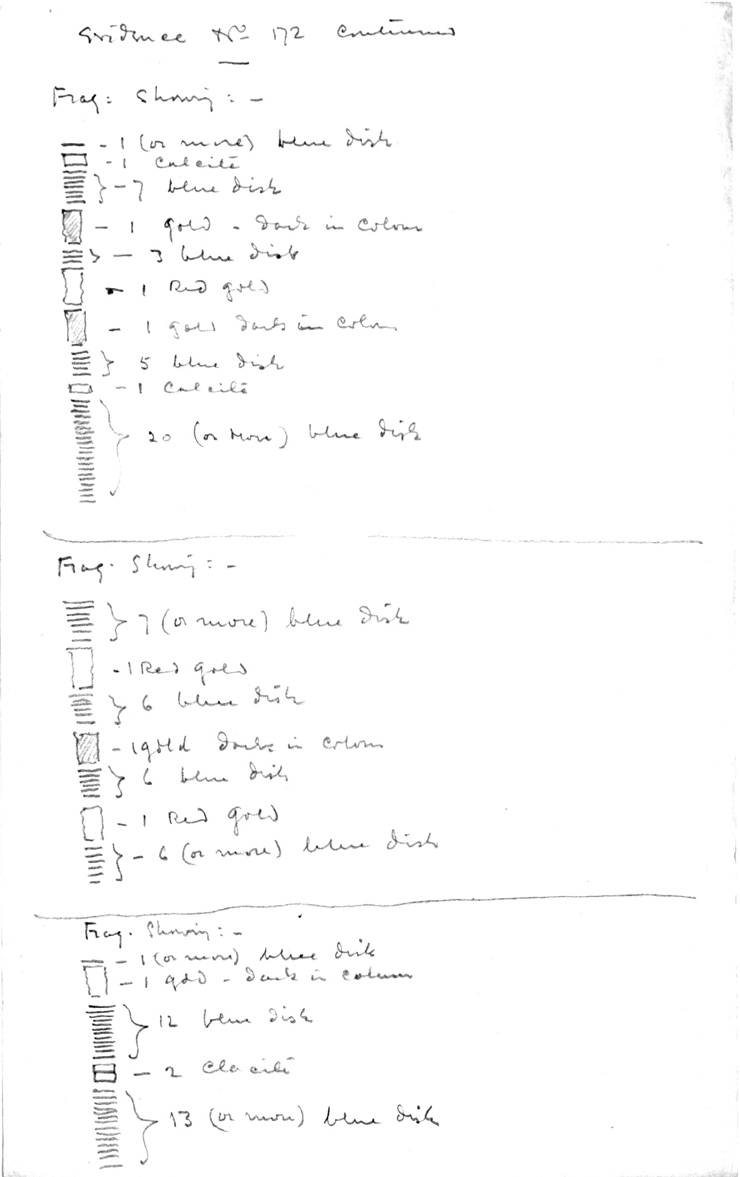 Evidence No 172 Continued
Frag: Showing: -
- 1 (or more) blue disk
- 1 Calcite
} - 7 blue disk
- 1 gold - dark in colour
} - 3 blue disk
- 1 Red gold
- 1 gold dark in colour
} 5 blue disk
- 1 Calcite
} 20 (or more) blue disk
Frag. Showing: -
} 7 (or more) blue disk
- 1 Red gold
} 6 blue disk
- 1 gold dark in colour
} 6 blue disk
- 1 Red gold
} - 6 (or more) blue disk
Frag. Showing: -
- 1 (or more) blue disk
- 1 gold - dark in colour
} 12 blue disk
- 2 Clacite
} 13 (or more) blue disk